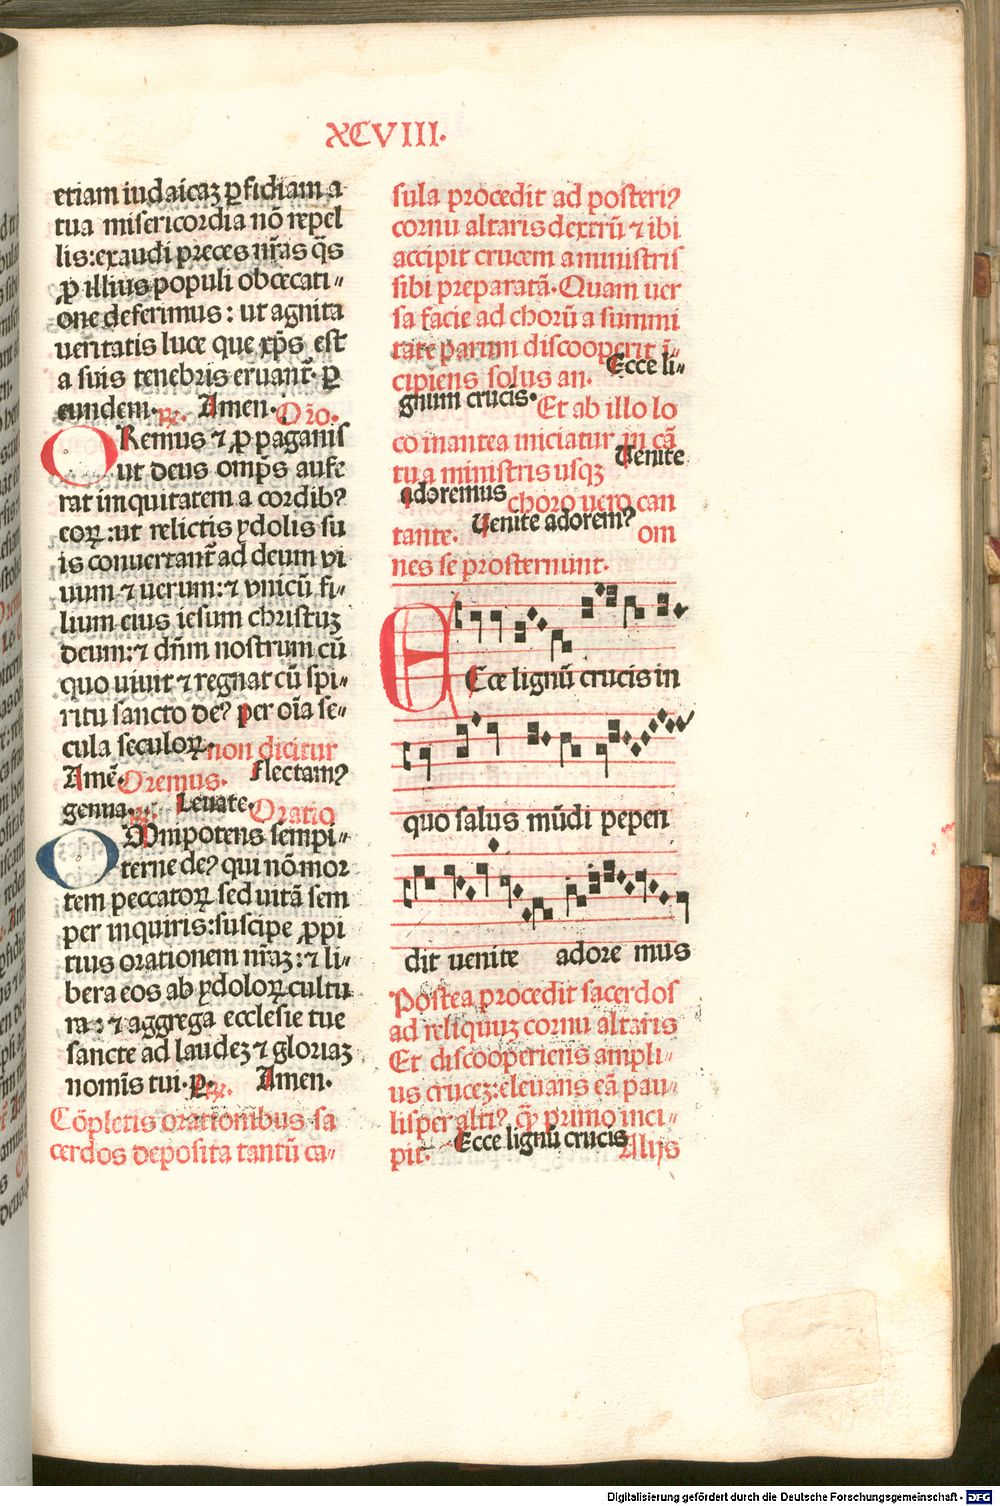 XCVIII.
etiam iudaicaꝫ ꝑfidiam a
tua misericordia nō repel
lis: exaudi preces nr̄as q̄s
ꝓ illius populi obcecati⸗
one deferimus: ut agnita
ueritatis luce que xp̄s est
a suis tenebris eruant᷑. ꝑ
eundem. ℟. Amen. Or̄o.
ORemus ⁊ ꝓ paganis
ut deus omp̄s aufe
rat iniquitatem a cordib?
eoꝝ: ut relictis ydolis su
is conuertant᷑ ad deum vi
uum ⁊ uerum: ⁊ vnicū fi⸗
lium eius iesum christuꝫ
deum: ⁊ dn̄m nostrum cū
quo uiuit ⁊ regnat cū spi⸗
ritu sancto de? per oīa se⸗
cula seculoꝝ. non dicitur
Amē. Oremus. Flectam?
genua. Leuate. Oratio
OMnipotens sempi⸗
terne de? qui nō mor
tem peccatoꝝ sed uitā sem
per inquiris: suscipe ꝓpi
tius orationem nr̄aꝫ: ⁊ li⸗
bera eos ab ydoloꝝ cultu
ra: ⁊ aggrega ecclesie tue
sancte ad laudeꝫ ⁊ gloriaꝫ
nomīs tui. ꝑ. ℟. Amen.
Cōpletis orationibus sa
cerdos deposita tantū ca⸗
sula procedit ad posteri?
cornu altaris dextrū ⁊ ibi
accipit crucem a ministris
sibi preparatā. Quam uer
sa facie ad chorū a summi
tate parum discooperit ī⸗
cipiens solus an. Ecce li⸗
gnum crucis. Et ab illo lo
co in antea iniciatur in cā
tu a ministris usqꝫ Uenite
adoremus choro uero can
tante. Uenite adorem? om
nes se prosternunt.
ECce lignū crucis in
quo salus mūdi pepen
dit uenite adore mus
Postea procedit sacerdos
ad reliquuꝫ cornu altaris
Et discooperiens ampli⸗
us cruceꝫ: eleuans eā pau⸗
lisper alti? q̄ꝫ primo inci⸗
pit. Ecce lignū crucis Alijs
Digitalisierung gefördert durch die Deutsche Forschungsgemeinschaft - DFG